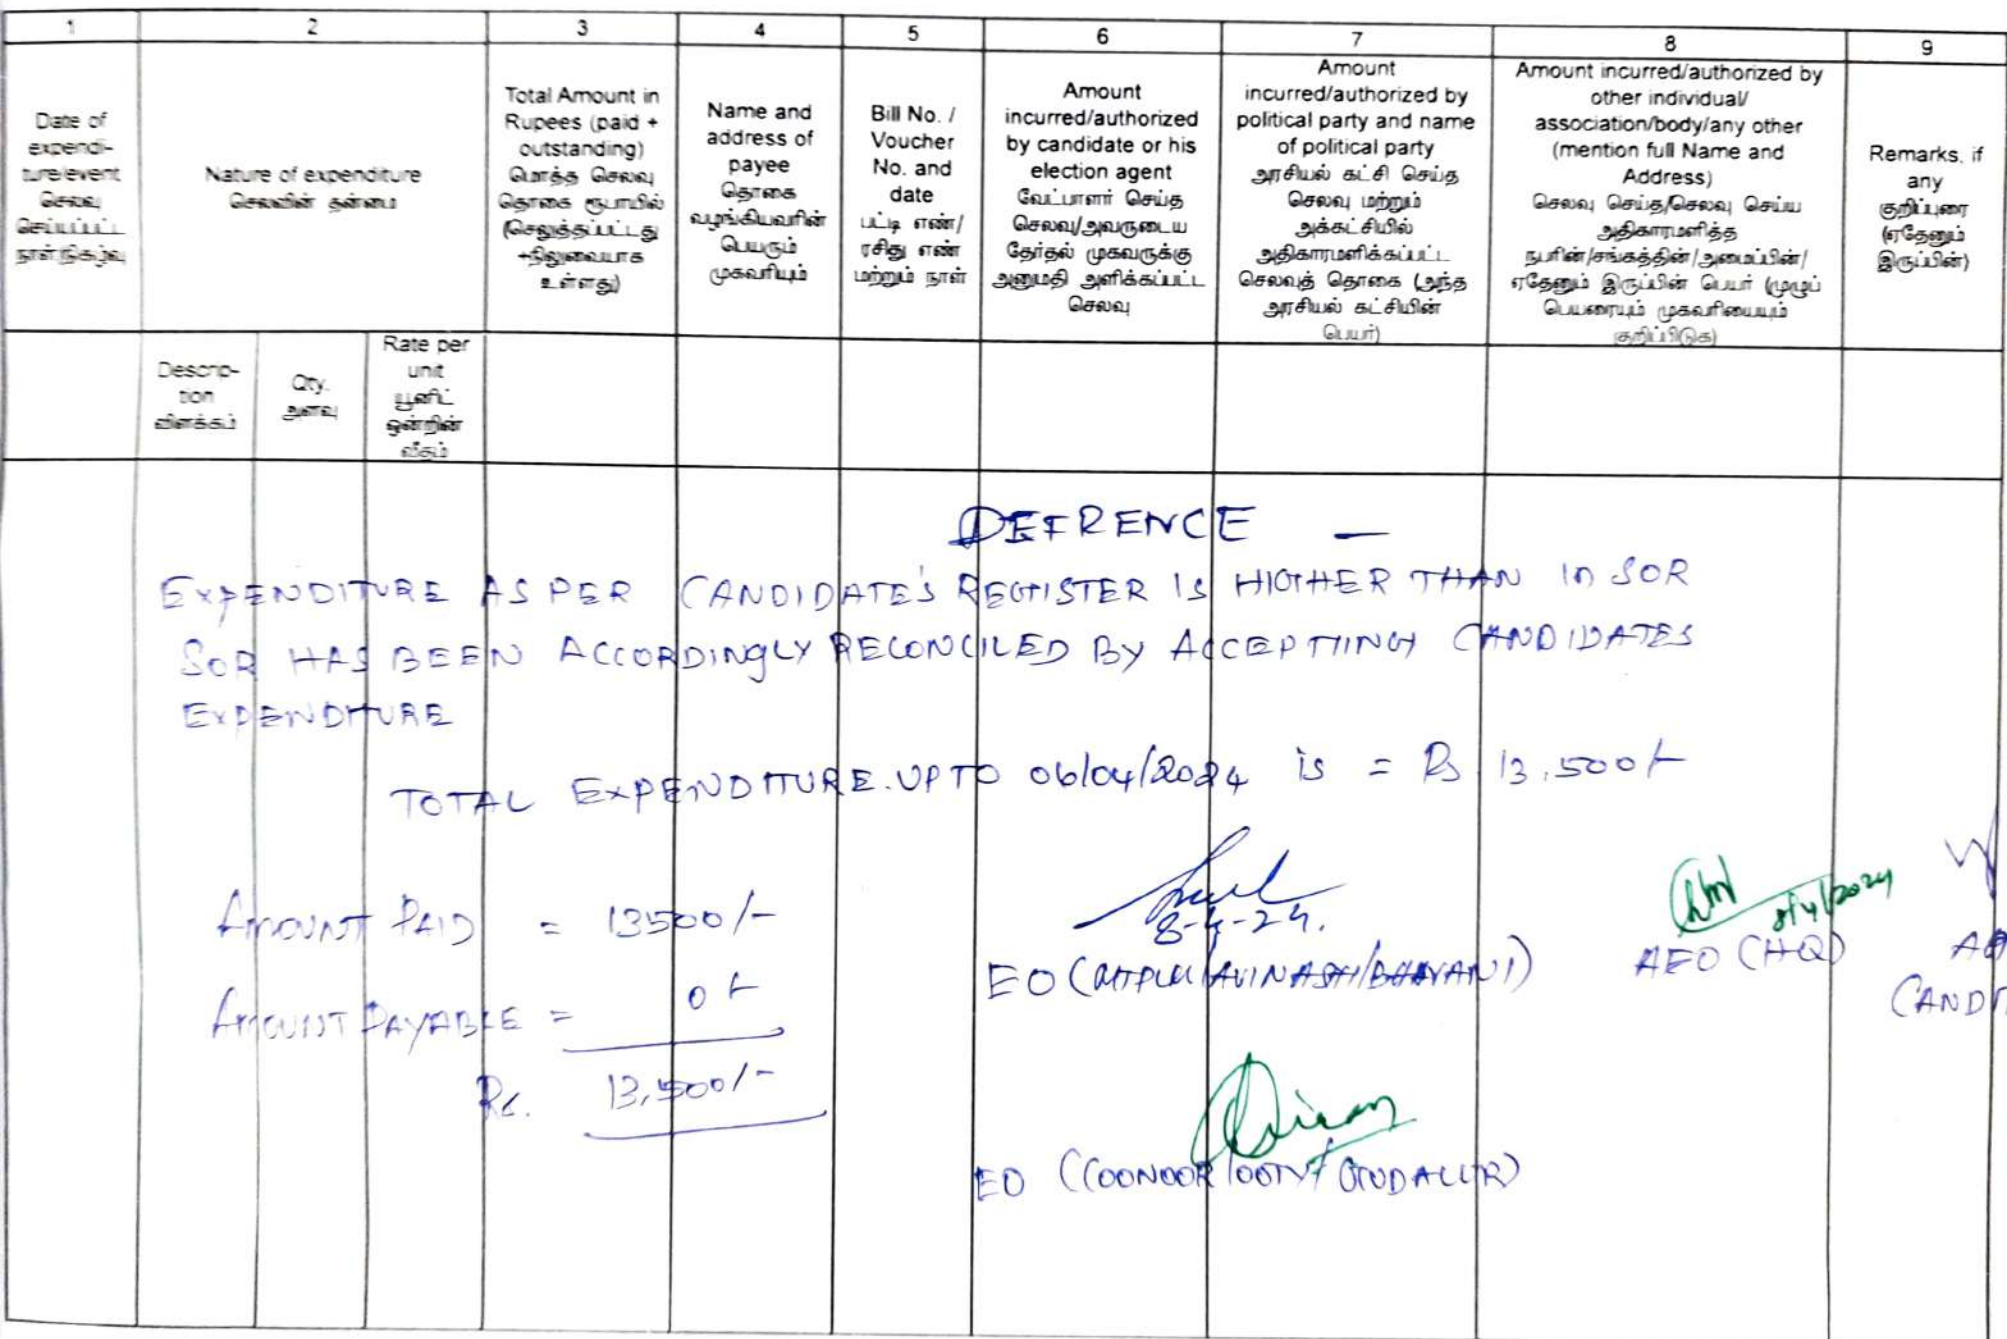 1 2 3 4 5 6 7 8 9
Date of
expendi-
ture/event
செலவு
செய்யப்பட்ட
நாள்/நிகழ்வு
Nature of expenditure
செலவின் தன்மை
Total Amount in
Rupees (paid +
outstanding)
மொத்த செலவு
தொகை ரூபாயில்
(செலுத்தப்பட்டது
+நிலுவையாக
உள்ளது)
Name and
address of
payee
தொகை
வழங்கியவரின்
பெயரும்
முகவரியும்
Bill No. /
Voucher
No. and
date
பட்டி எண்/
ரசிது எண்
மற்றும் நாள்
Amount
incurred/authorized
by candidate or his
election agent
வேட்பாளர் செய்த
செலவு/அவருடைய
தேர்தல் முகவருக்கு
அனுமதி அளிக்கப்பட்ட
செலவு
Amount
incurred/authorized by
political party and name
of political party
அரசியல் கட்சி செய்த
செலவு மற்றும்
அக்கட்சியில்
அதிகாரமளிக்கப்பட்ட
செலவுத் தொகை (அந்த
அரசியல் கட்சியின்
பெயர்)
Amount incurred/authorized by
other individual/
association/body/any other
(mention full Name and
Address)
செலவு செய்த/செலவு செய்ய
அதிகாரமளித்த
நபரின்/சங்கத்தின்/அமைப்பின்/
ஏதேனும் இருப்பின் பெயர் (முழுப்
பெயரையும் முகவரியையும்
குறிப்பிடுக)
Remarks, if
any
குறிப்புரை
(ஏதேனும்
இருப்பின்)
Descrip-
tion
விளக்கம்
Qty.
அளவு
Rate per
unit
யூனிட்
ஒன்றின்
வீதம்
DEFRENCE —
EXPENDITURE AS PER CANDIDATE'S REGISTER IS HIGHER THAN IN SOR
SOR HAS BEEN ACCORDINGLY RECONCILED BY ACCEPTING CANDIDATES
EXPENDITURE
TOTAL EXPENDITURE. UPTO 06/04/2024 is = Rs 13,500/-
AMOUNT PAID = 13500/-
8-4-24.
8/4/2024
EO (MTPLM/AVINASHI/BHAVANI)
AEO (HQ)
AMOUNT PAYABLE = 0/-
Rs. 13,500/-
EO (COONOOR/OOTY/GUDALUR)